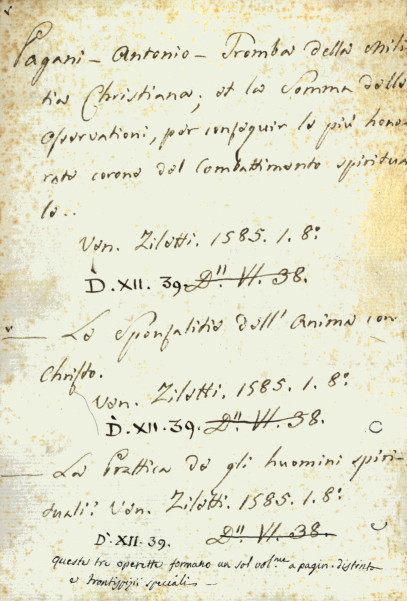 Pagani - Antonio - Tromba della Mili
tia Christiana; et la Somma delle
osservationi, per conseguir le più hono
rate corone del Combattimento spiritua
le..
Ven. Ziletti. 1585. 1. 8º
D. XII. 39. Dii. VI. 38.
— Le Sponsalitie dell' Anima con
Christo.
Ven. Ziletti. 1585. 1. 8º
D. XII. 39. Dii. VI. 38.
— La Prattica de gli huomini spiri-
tuali: Ven. Ziletti. 1585. 1. 8º
D. XII. 39 Dii. VI. 38.
queste tre operette formano un sol vol.me a pagin. distinte
e frontispizii speciali —